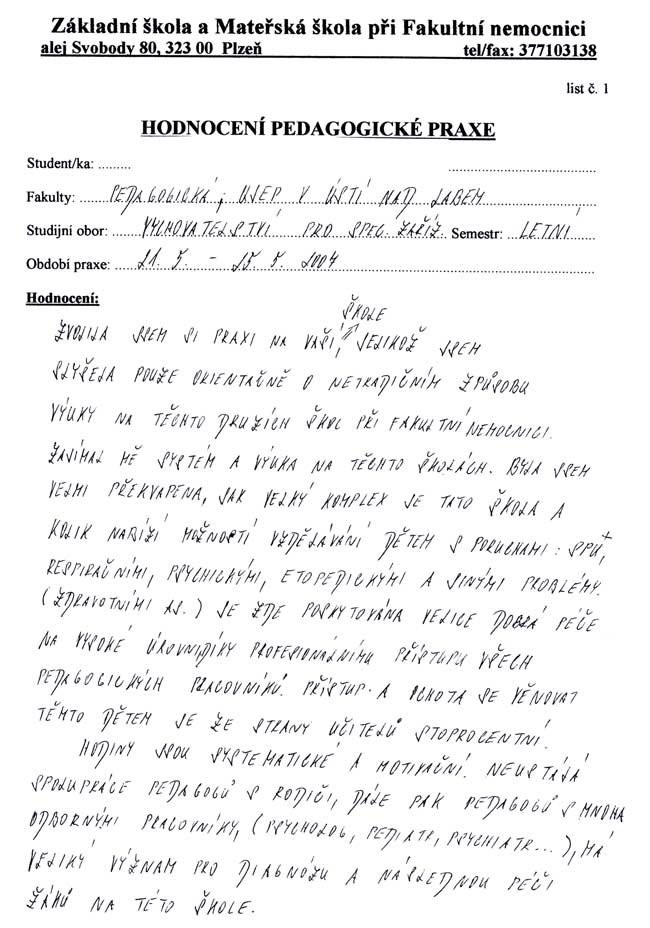 Základní škola a Mateřská škola při Fakultní nemocnici
alej Svobody 80, 323 00 Plzeň tel/fax: 377103138
list č. 1
HODNOCENÍ PEDAGOGICKÉ PRAXE
Student/ka: .........
Fakulty: PEDAGOGICKÁ, UJEP V ÚSTÍ NAD LABEM
Studijní obor: VYCHOVATELSTVÍ PRO SPEC. ZAŘÍZ. Semestr: LETNÍ
Období praxe: 21. 5. - 25. 5. 2004
Hodnocení:
ŠKOLE
ZVOLILA JSEM SI PRAXI NA VAŠÍ, JELIKOŽ JSEM
SLYŠELA POUZE ORIENTAČNĚ O NETRADIČNÍM ZPŮSOBU
VÝUKY NA TĚCHTO DRUZÍCH ŠKOL PŘI FAKULTNÍ NEMOCNICI.
ZAJÍMAL MĚ SYSTÉM A VÝUKA NA TĚCHTO ŠKOLÁCH. BYLA JSEM
VELMI PŘEKVAPENA, JAK VELKÝ KOMPLEX JE TATO ŠKOLA A
KOLIK NABÍZÍ MOŽNOSTÍ VZDĚLÁVÁNÍ DĚTEM S PORUCHAMI: SPU,
RESPIRAČNÍMI, PSYCHICKÝMI, ETOPEDICKÝMI A JINÝMI PROBLÉMY.
(ZDRAVOTNÍMI AJ.) JE ZDE POSKYTOVÁNA VELICE DOBRÁ PÉČE
NA VYSOKÉ ÚROVNI DÍKY PROFESIONÁLNÍMU PŘÍSTUPU VŠECH
PEDAGOGICKÝCH PRACOVNÍKŮ. PŘÍSTUP A OCHOTA SE VĚNOVAT
TĚMTO DĚTEM JE ZE STRANY UČITELŮ STOPROCENTNÍ.
HODINY JSOU SYSTEMATICKÉ A MOTIVAČNÍ. NEUSTÁLÁ
SPOLUPRÁCE PEDAGOGŮ S RODIČI, DÁLE PAK PEDAGOGŮ S MNOHA
ODBORNÝMI PRACOVNÍKY, (PSYCHOLOG, PEDIATR, PSYCHIATR...), MÁ
VELIKÝ VÝZNAM PRO DIAGNÓZU A NÁSLEDNOU PÉČI
ŽÁKŮ NA TÉTO ŠKOLE.